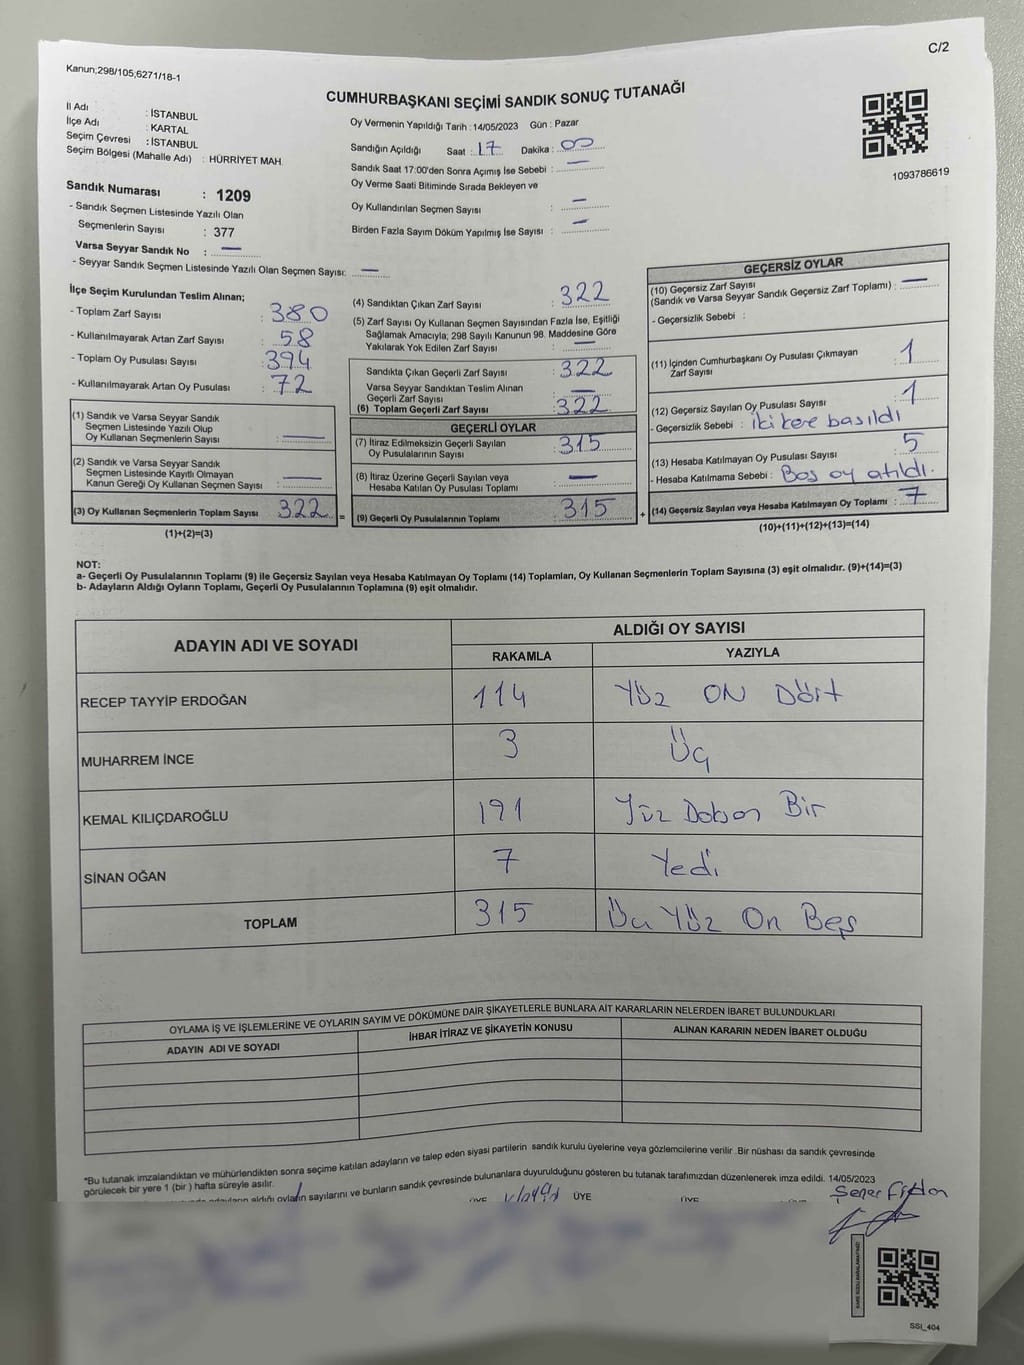 C/2
Kanun;298/105;6271/18-1
CUMHURBAŞKANI SEÇİMİ SANDIK SONUÇ TUTANAĞI
İl Adı : İSTANBUL
İlçe Adı : KARTAL
Seçim Çevresi : İSTANBUL
Seçim Bölgesi (Mahalle Adı) : HÜRRİYET MAH.
Sandık Numarası : 1209
- Sandık Seçmen Listesinde Yazılı Olan
Seçmenlerin Sayısı : 377
Varsa Seyyar Sandık No : —
- Seyyar Sandık Seçmen Listesinde Yazılı Olan Seçmen Sayısı: —
Oy Vermenin Yapıldığı Tarih : 14/05/2023 Gün : Pazar
Sandığın Açıldığı Saat : 17 Dakika : 00
Sandık Saat 17:00'den Sonra Açımış İse Sebebi : —
Oy Verme Saati Bitiminde Sırada Bekleyen ve
Oy Kullandırılan Seçmen Sayısı : —
Birden Fazla Sayım Döküm Yapılmış İse Sayısı : —
1093786619
İlçe Seçim Kurulundan Teslim Alınan;
- Toplam Zarf Sayısı : 380
- Kullanılmayarak Artan Zarf Sayısı : 58
- Toplam Oy Pusulası Sayısı : 394
- Kullanılmayarak Artan Oy Pusulası : 72
(1) Sandık ve Varsa Seyyar Sandık
Seçmen Listesinde Yazılı Olup
Oy Kullanan Seçmenlerin Sayısı : —
(2) Sandık ve Varsa Seyyar Sandık
Seçmen Listesinde Kayıtlı Olmayan
Kanun Gereği Oy Kullanan Seçmen Sayısı : —
(3) Oy Kullanan Seçmenlerin Toplam Sayısı : 322 =
(1)+(2)=(3)
(4) Sandıktan Çıkan Zarf Sayısı : 322
(5) Zarf Sayısı Oy Kullanan Seçmen Sayısından Fazla İse, Eşitliği
Sağlamak Amacıyla; 298 Sayılı Kanunun 98. Maddesine Göre
Yakılarak Yok Edilen Zarf Sayısı : —
Sandıkta Çıkan Geçerli Zarf Sayısı : 322
Varsa Seyyar Sandıktan Teslim Alınan
Geçerli Zarf Sayısı : —
(6) Toplam Geçerli Zarf Sayısı : 322
GEÇERLİ OYLAR
(7) İtiraz Edilmeksizin Geçerli Sayılan
Oy Pusulalarının Sayısı : 315
(8) İtiraz Üzerine Geçerli Sayılan veya
Hesaba Katılan Oy Pusulası Toplamı : —
(9) Geçerli Oy Pusulalarının Toplamı : 315 +
GEÇERSİZ OYLAR
(10) Geçersiz Zarf Sayısı
(Sandık ve Varsa Seyyar Sandık Geçersiz Zarf Toplamı) : —
- Geçersizlik Sebebi :
(11) İçinden Cumhurbaşkanı Oy Pusulası Çıkmayan
Zarf Sayısı : 1
(12) Geçersiz Sayılan Oy Pusulası Sayısı : 1
- Geçersizlik Sebebi : iki kere basıldı
(13) Hesaba Katılmayan Oy Pusulası Sayısı : 5
- Hesaba Katılmama Sebebi : Boş oy atıldı.
(14) Geçersiz Sayılan veya Hesaba Katılmayan Oy Toplamı : 7
(10)+(11)+(12)+(13)=(14)
NOT:
a- Geçerli Oy Pusulalarının Toplamı (9) ile Geçersiz Sayılan veya Hesaba Katılmayan Oy Toplamı (14) Toplamları, Oy Kullanan Seçmenlerin Toplam Sayısına (3) eşit olmalıdır. (9)+(14)=(3)
b- Adayların Aldığı Oyların Toplamı, Geçerli Oy Pusulalarının Toplamına (9) eşit olmalıdır.
ADAYIN ADI VE SOYADI
ALDIĞI OY SAYISI
RAKAMLA YAZIYLA
RECEP TAYYİP ERDOĞAN 114 Yüz ON Dört
MUHARREM İNCE 3 Üç
KEMAL KILIÇDAROĞLU 191 Yüz Doksan Bir
SİNAN OĞAN 7 Yedi
TOPLAM 315 Üç Yüz On Beş
OYLAMA İŞ VE İŞLEMLERİNE VE OYLARIN SAYIM VE DÖKÜMÜNE DAİR ŞİKAYETLERLE BUNLARA AİT KARARLARIN NELERDEN İBARET BULUNDUKLARI
ADAYIN ADI VE SOYADI İHBAR İTİRAZ VE ŞİKAYETİN KONUSU ALINAN KARARIN NEDEN İBARET OLDUĞU
*Bu tutanak imzalandıktan ve mühürlendikten sonra seçime katılan adayların ve talep eden siyasi partilerin sandık kurulu üyelerine veya gözlemcilerine verilir .Bir nüshası da sandık çevresinde
görülecek bir yere 1 (bir ) hafta süreyle asılır.
adayların aldığı oyların sayılarını ve bunların sandık çevresinde bulunanlara duyurulduğunu gösteren bu tutanak tarafımızdan düzenlenerek imza edildi. 14/05/2023
ÜYE ÜYE ÜYE
Şener
SSI_404